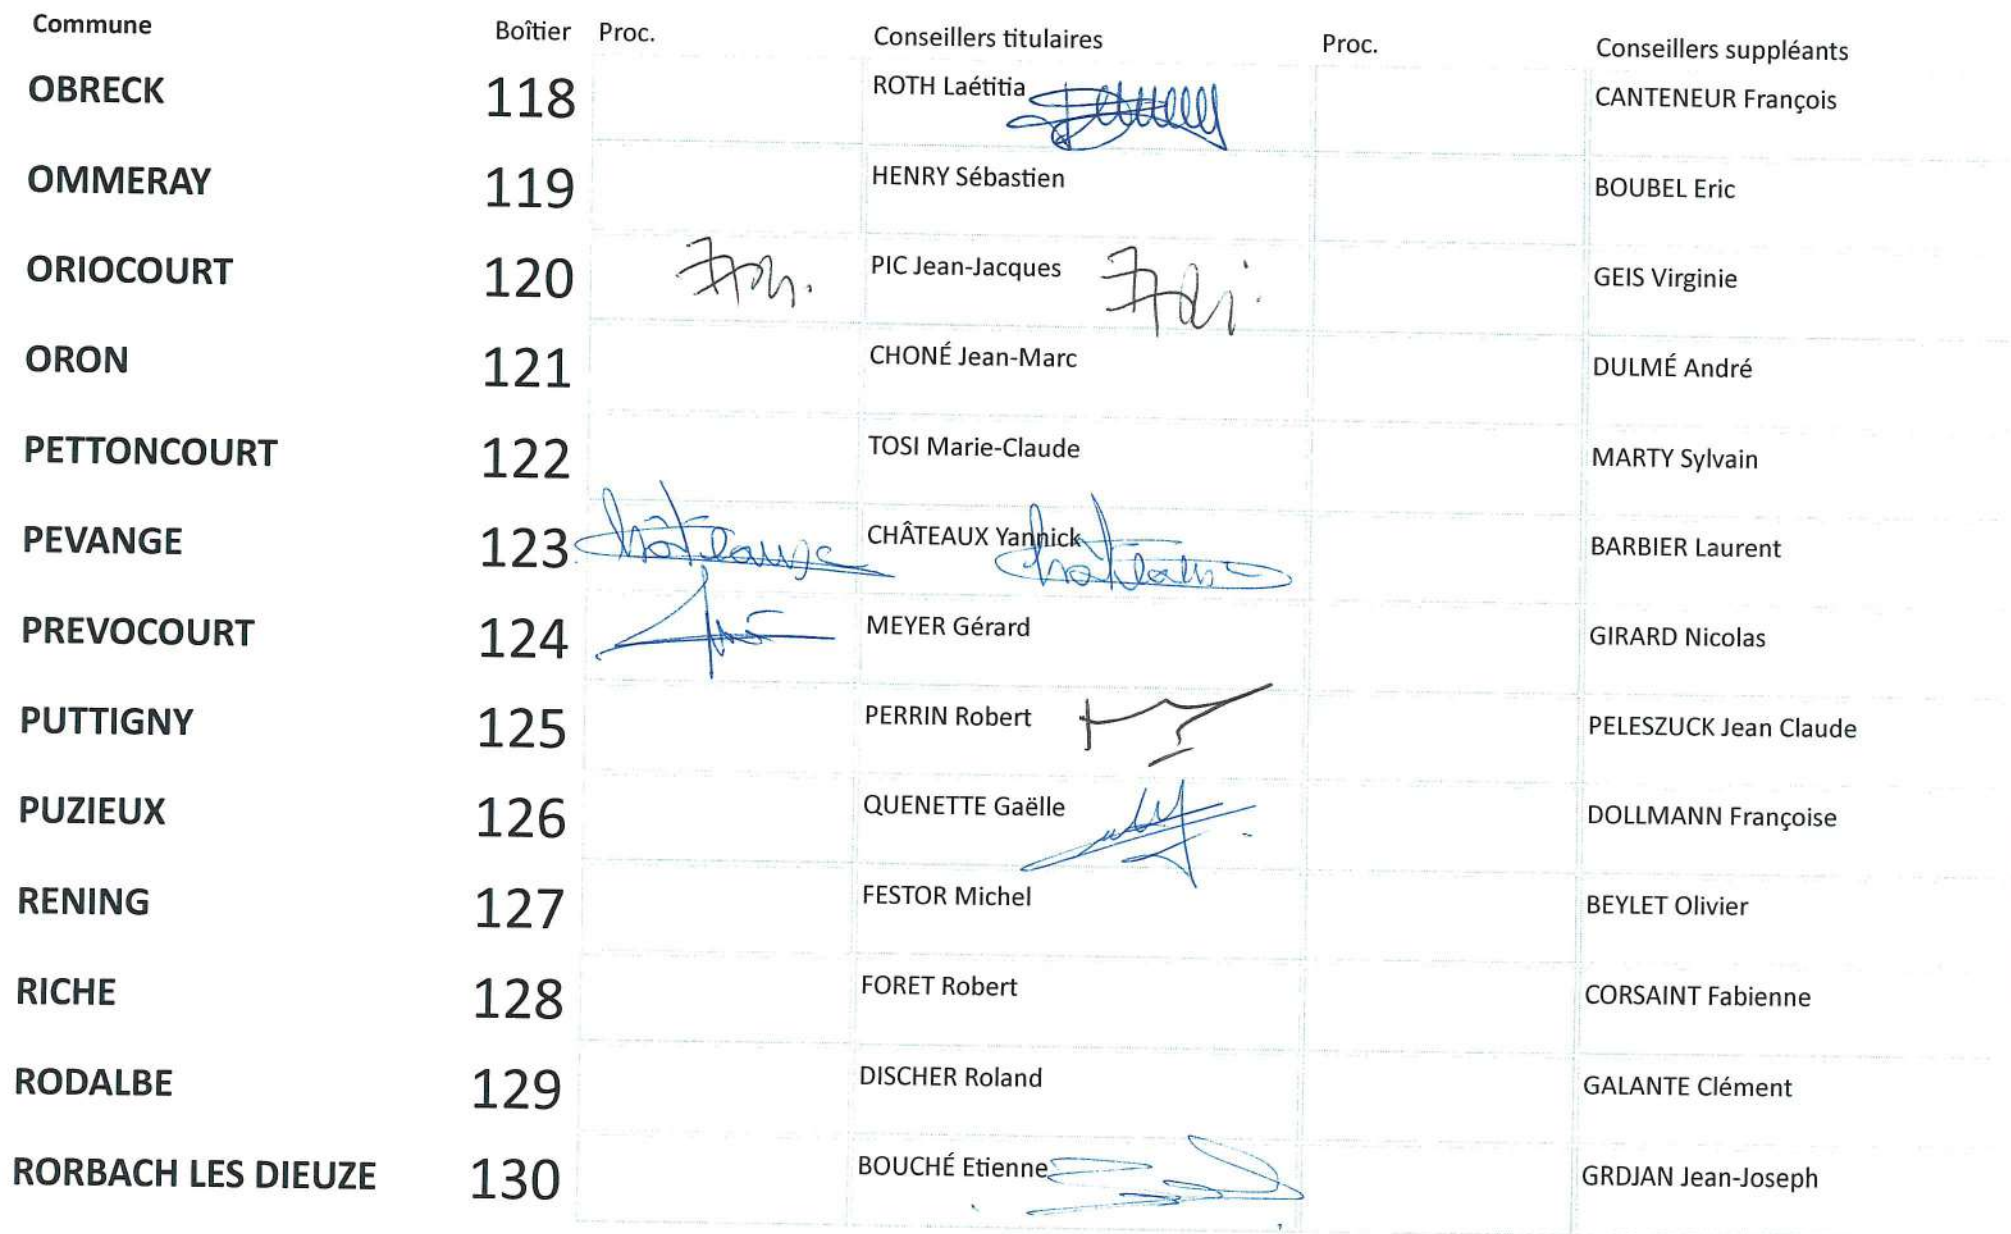 Commune Boîtier Proc. Conseillers titulaires Proc. Conseillers suppléants
OBRECK 118 ROTH Laétitia CANTENEUR François
OMMERAY 119 HENRY Sébastien BOUBEL Eric
ORIOCOURT 120 PIC Jean-Jacques GEIS Virginie
ORON 121 CHONÉ Jean-Marc DULMÉ André
PETTONCOURT 122 TOSI Marie-Claude MARTY Sylvain
PEVANGE 123 Châteaux CHÂTEAUX Yannick Châteaux BARBIER Laurent
PREVOCOURT 124 MEYER Gérard GIRARD Nicolas
PUTTIGNY 125 PERRIN Robert PELESZUCK Jean Claude
PUZIEUX 126 QUENETTE Gaëlle DOLLMANN Françoise
RENING 127 FESTOR Michel BEYLET Olivier
RICHE 128 FORET Robert CORSAINT Fabienne
RODALBE 129 DISCHER Roland GALANTE Clément
RORBACH LES DIEUZE 130 BOUCHÉ Etienne GRDJAN Jean-Joseph